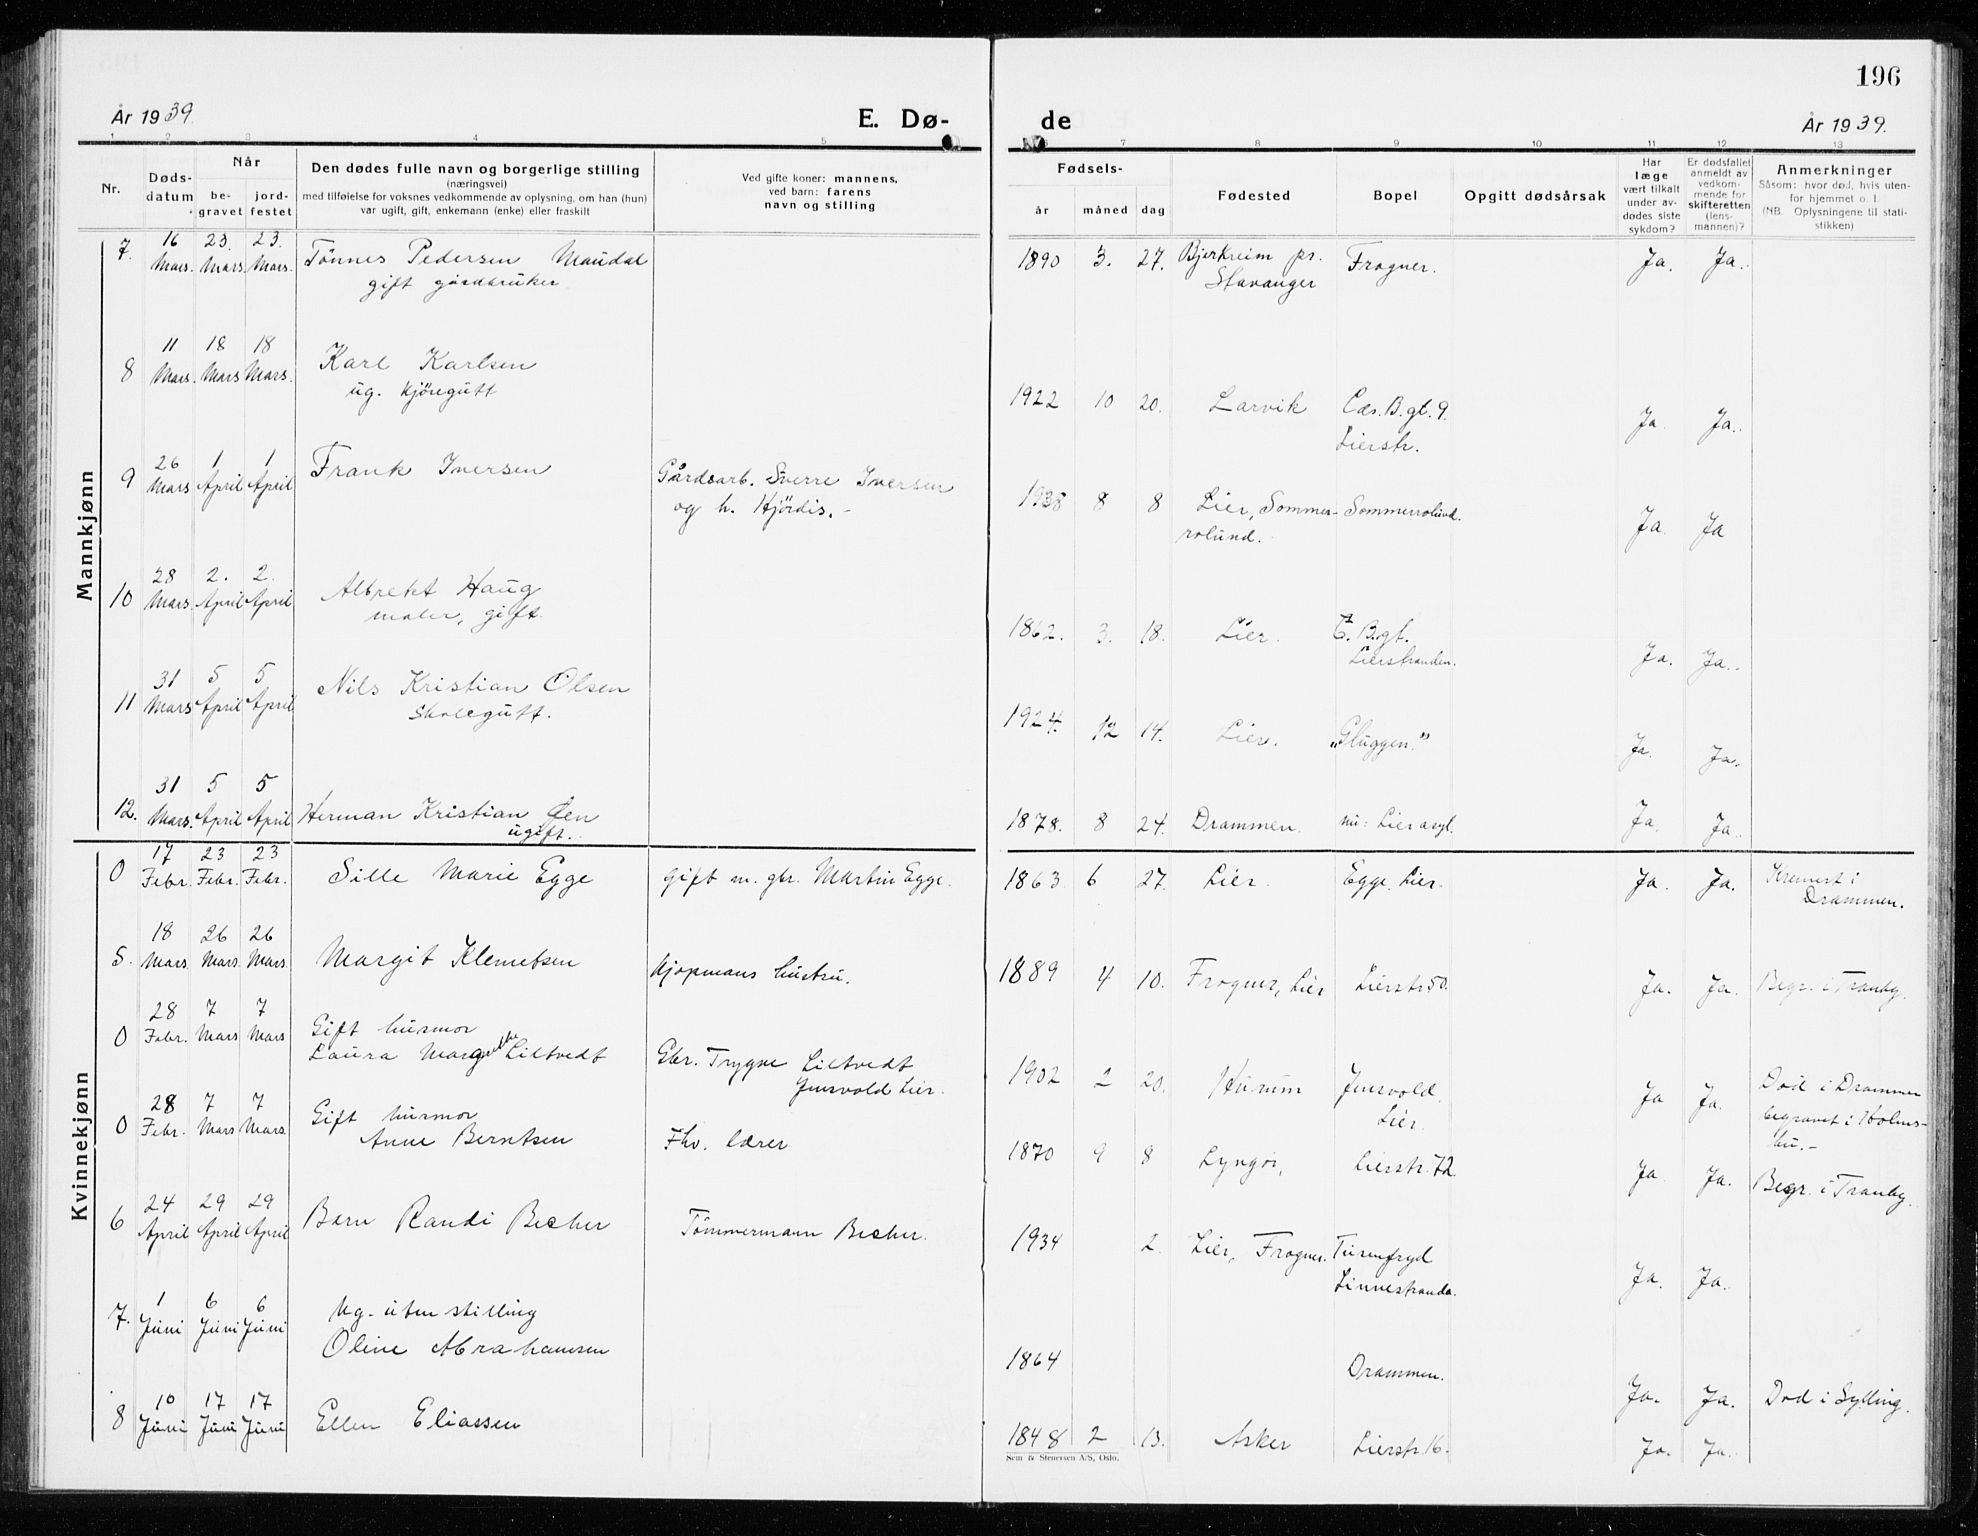 196
År 1939.
E. Dø-
de
År 1939.
1 2 3 4 5 6 7 8 9 10 11 12 13
Nr.
Døds-
datum
Når
be-
gravet
jord-
festet
Den dødes fulle navn og borgerlige stilling
(næringsvei)
med tilføielse for voksnes vedkommende av oplysning, om han (hun)
var ugift, gift, enkemann (enke) eller fraskilt
Ved gifte koner: mannens,
ved barn: farens
navn og stilling
Fødsels-
år måned dag
Fødested
Bopel
Opgitt dødsårsak
Har
læge
vært tilkalt
under av-
dødes siste
sykdom?
Er dødsfallet
anmeldt av
vedkom-
mende for
skifteretten
(lens-
mannen)?
Anmerkninger
Såsom: hvor død, hvis uten-
for hjemmet o. l.
(NB. Oplysningene til stati-
stikken)
Mannkjønn
7. 16 Mars. 23. Mars 23. Mars. Tönnes Pedersen Maudal
gift gårdbruker
1890 3. 27. Bjerkreim pr. Stavanger Frogner. Ja. Ja.
8 11 Mars. 18 Mars 18 Mars. Karl Karlsen
ug. kjöregutt
1922 10 20. Larvik Cas. B. gt. 9. Lierstr. Ja. Ja.
9 26 Mars 1 April 1 April Frank Iversen
Gårdsarb. Sverre Iversen
og h. Hjördis. -
1938 8 8 Lier, Sommer-rolund. Sommerrolund. Ja. Ja
10 28 Mars 2. April 2. April Albrekt Haug
maler, gift.
1862. 3. 18. Lier. B. gt. Lierstranden. Ja. Ja.
11 31 Mars 5 April 5 April Nils Kristian Olsen
Skolegutt.
1924. 12 14. Lier. "Gluggen." Ja. Ja.
12. 31 Mars. 5 April 5 April Herman Kristian Øen
ugift.
1878. 8 24. Drammen. nu: Lier asyl. Ja. Ja.
Kvinnekjønn
0 17 Febr. 23 Febr. 23 Febr. Sille Marie Egge
gift m. gbr. Martin Egge.
1863 6 27. Lier. Egge. Lier. Ja. Ja. Kremert i
Drammen.
5. 18 Mars 26 Mars 26 Mars. Margit Klemetsen
Kjøpmans hustru.
1889 4 10. Frogner, Lier Lierstr 50. Ja. Ja. Begr. i Tranby.
0 28 Febr. 7 Mars 7 Mars Gift husmor
Laura Margrethe Liltvedt
Gbr. Trygve Liltvedt
Jensvold Lier.
1902 2 20. Hurum Jensvold Lier. Ja Ja. Död i Drammen
begravet i Holms-
bu. -
0 28 Febr. 7 Mars 7 Mars Gift husmor
Anne Berntsen
Fhv. lærer
1870 9 8 Lyngör, Lierstr. 72. Ja. Ja. Begr. i Tranby.
6 24 April 29 April 29 April Barn Randi Becher
Tömmermann Becher.
1934 2. Lier, Frogner. Tusenfryd
Linnestranda. Ja. Ja.
7. 1 Juni 6 Juni 6 Juni Ug. uten stilling
Oline Abrahamsen
1864 Drammen. Ja. Ja. Död i Sylling.
8 10 Juni 17 Juni 17 Juni Ellen Eliassen
1848 2 13. Asker Lierstr 16. Ja. Ja.
Sem & Stenersen A/S, Oslo.